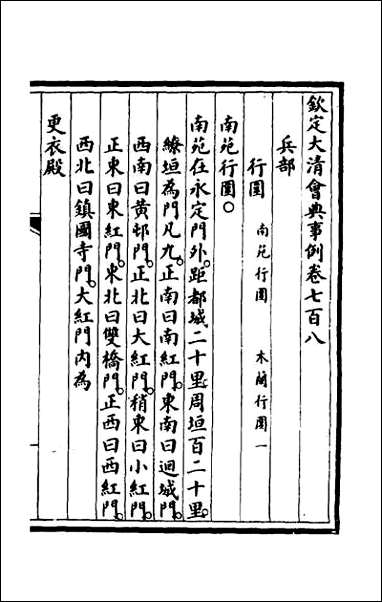 欽定大清會典事例卷七百八
兵部
行圍 南苑行圍 木蘭行圍一
南苑行圍○
南苑在永定門外。距都城二十里。周垣百二十里。
繚垣為門凡九。正南曰南紅門。東南曰迴城門。
西南曰黃邨門。正北曰大紅門。稍東曰小紅門。
正東曰東紅門。東北曰雙橋門。正西曰西紅門。
西北曰鎮國寺門。大紅門內為
更衣殿